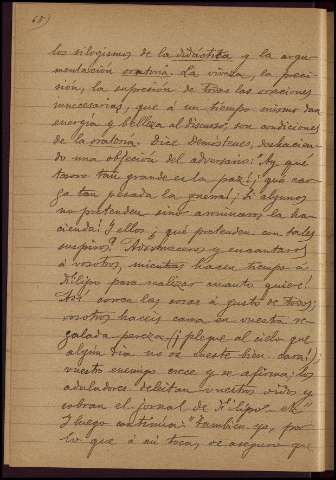 68)
los silogismos de la didáctica y la argu-
mentación oratoria. La viveza, la preci-
sión, la supresión de todas las oraciones
innecesarias, que á un tiempo mismo dan
energía y belleza al discurso, son condiciones
de la oratoria. Dice Demóstenes, deshacien-
do una objeción del adversario: "¡Ay qué
tesoro tan grande es la paz!; ¡qué car-
ga tan pesada la guerra!; ¡Si algunos
no pretenden sino arruinaros la ha-
cienda! Y ellos ¿qué pretenden con tales
suspiros? Adormeceros y encantaros
á vosotros, mientras hacen tiempo á
Filipo para realizar cuanto quiere!
Así corren las cosas á gusto de todos;
vosotros hacéis cama en vuestra re-
galada pereza, (¡plegue al cielo que
algún día no os cueste bien cara!);
vuestro enemigo crece y se afirma; los
aduladores deleitan vuestros oídos y
cobran el jornal de Filipo" etc
Y luego continúa: "también yo, por
lo que á mí toca, os aseguro que